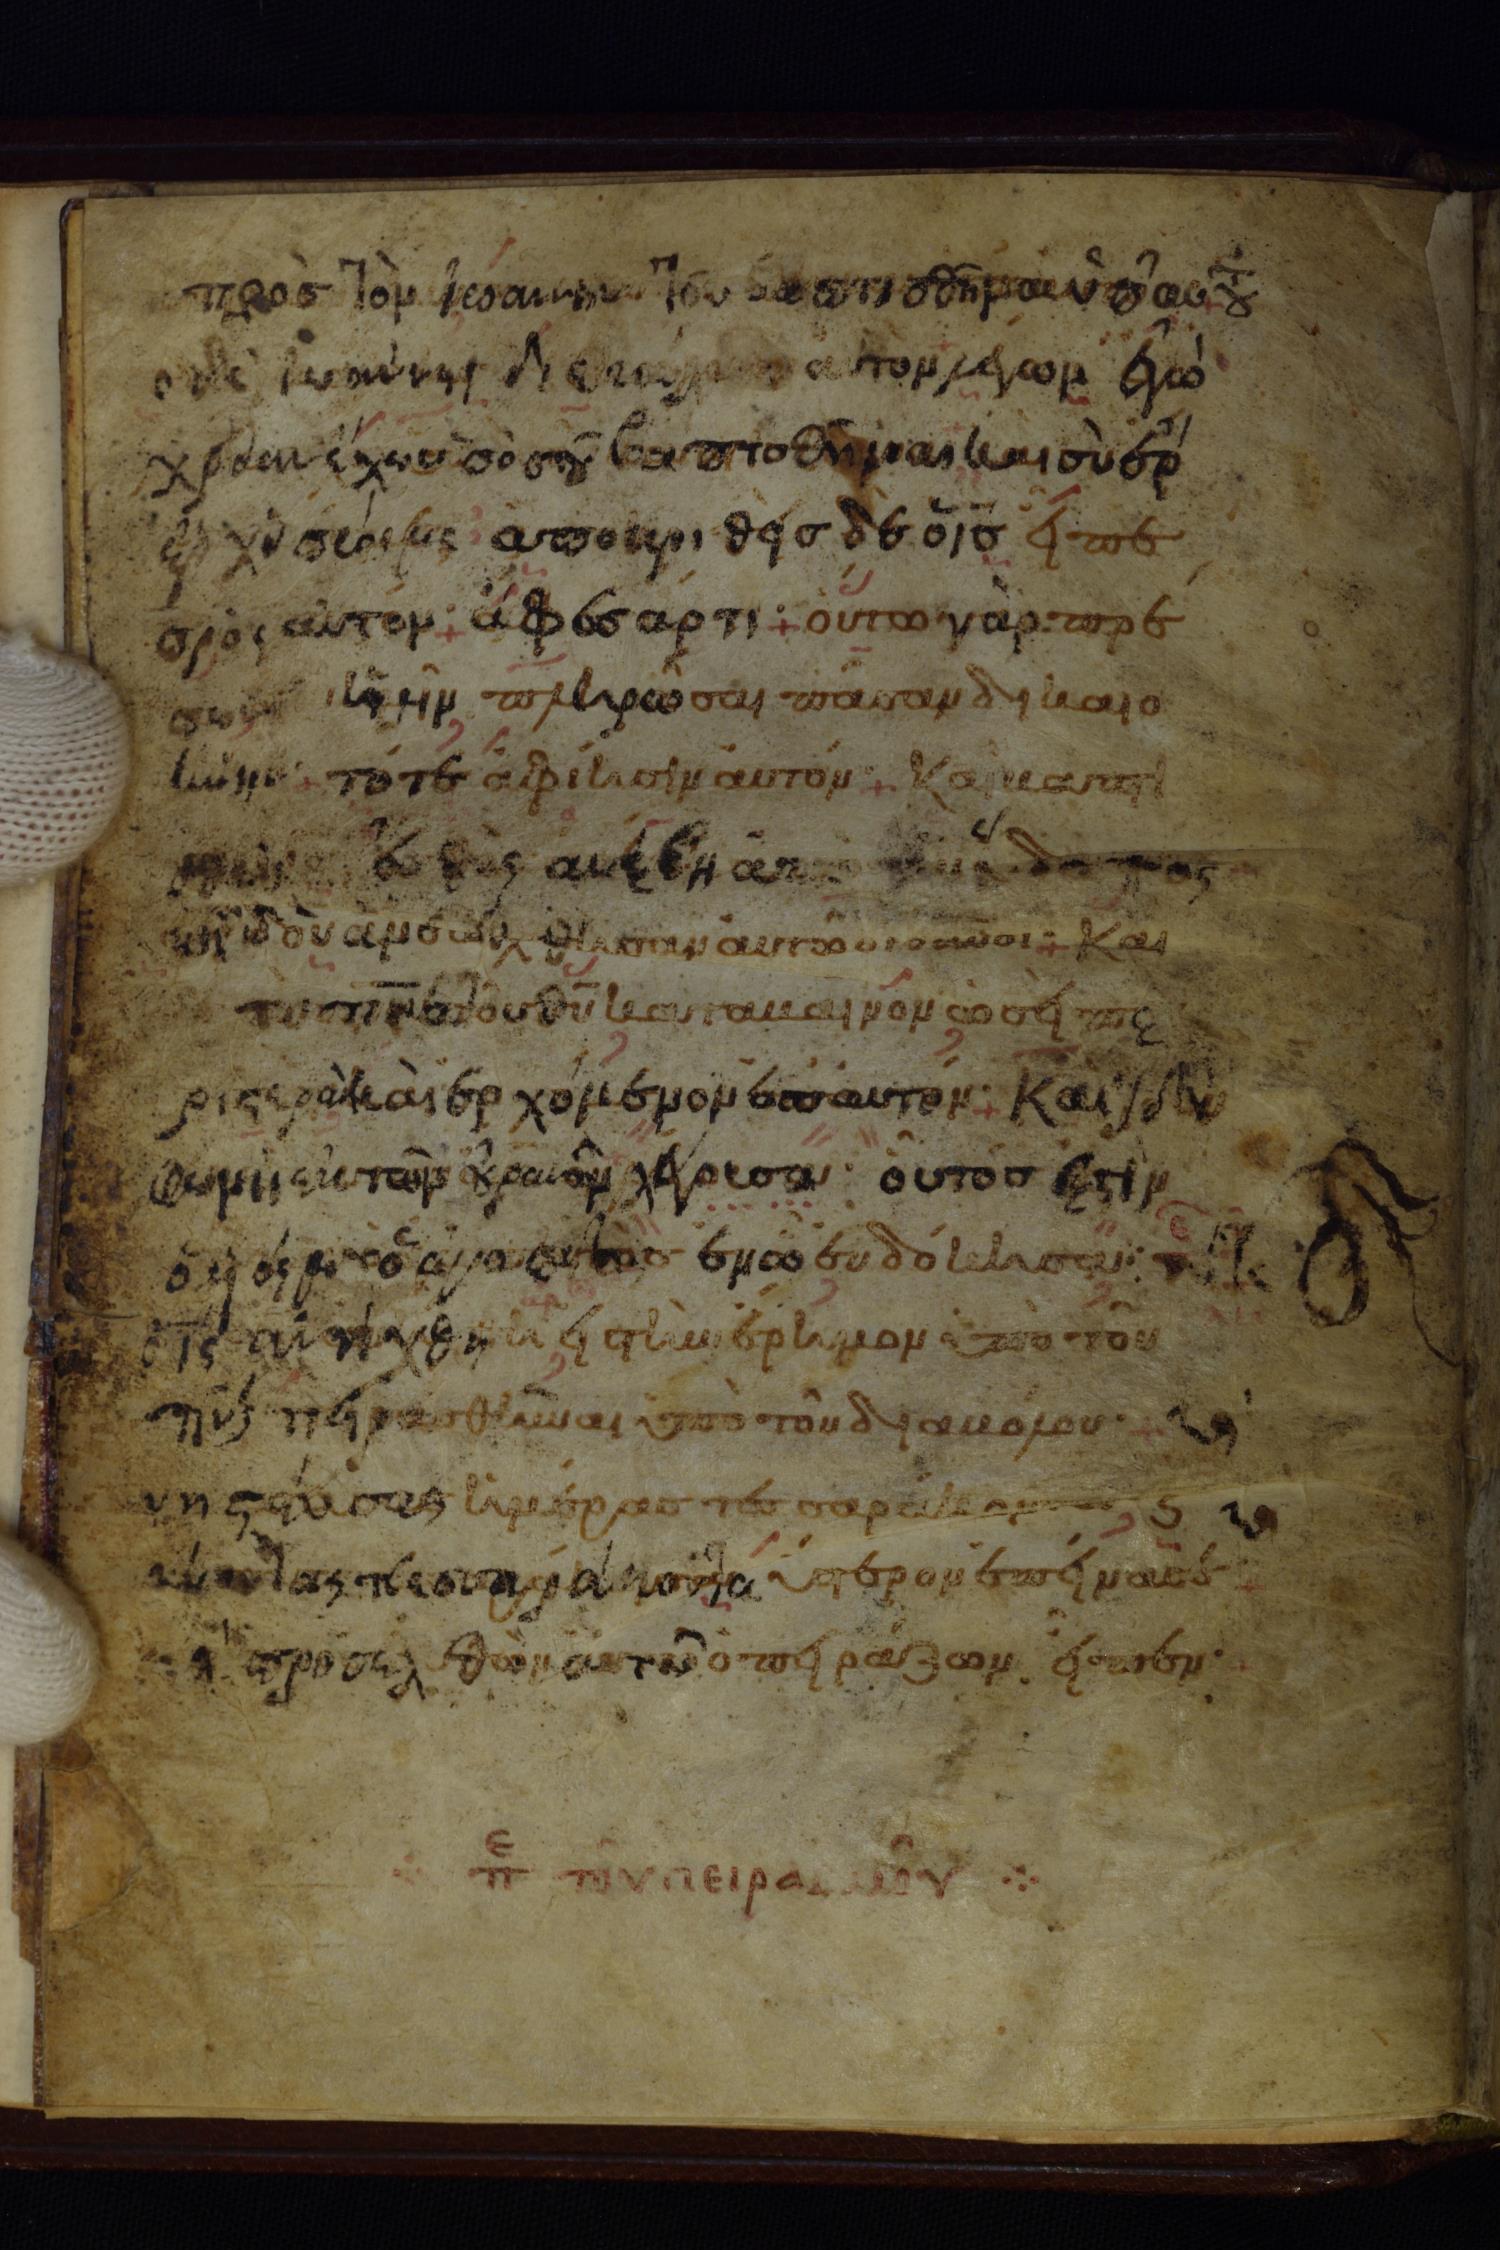 πρὸσ τὸν ἰωάννην τοῦ βαπτισθῆναι ὑπ αυτοῦ
ο δὲ ἰωάννης διεκώλυεν αὐτον λέγων ἐγὼ
χρείαν ἔχω ὑπὸ σοῦ βαπτισθῆναι καὶ σὺ ἔρ
χη πρός με αποκριθεὶσ δὲ ὁ ις εἶπε
πρὸς αὐτόν· ἄφεσ ἄρτι· οὕτω γὰρ πρέ
πον ἡμῖν πληρῶσαι πᾶσαν δικαιο
σύνην· τότε ἀφίησιν αὐτόν· Καὶ βαπτι
σθεὶς ὁ ις ἀνέβη ἀπὸ τοῦ ὕδατος
καὶ ἰδοὺ ἀνεώχθησαν αυτῶ οι ουνοι· Και
το πνα τοῦ θυ καταβαῖνον ὡσεὶ πε
ριστερὰν καὶ ερχόμενον ἐπ αυτόν· Καὶ ἰδοὺ
φωνὴ ἐκ τῶν οὐρανῶν λέγουσα· οὗτόσ ἐστιν
ὁ υἱός μου ὁ ἀγαπητὸσ ἐν ὧ ευδόκησα·
ὁ ις ἀνήχθη εἰσ τὴν ἔρημον ὑπὸ τοῦ
πνς πειρασθῆναι ὑπὸ τοῦ διαβόλου·
νηστεύσας ἡμέρασ τεσσαράκοντα
νύκτας τεσσαράκοντα ὕστερον ἐπείνασε·
καὶ προσελθὼν αυτῶ ο πειράζων εἶπεν·
πε τοῦ πειρασμοῦ